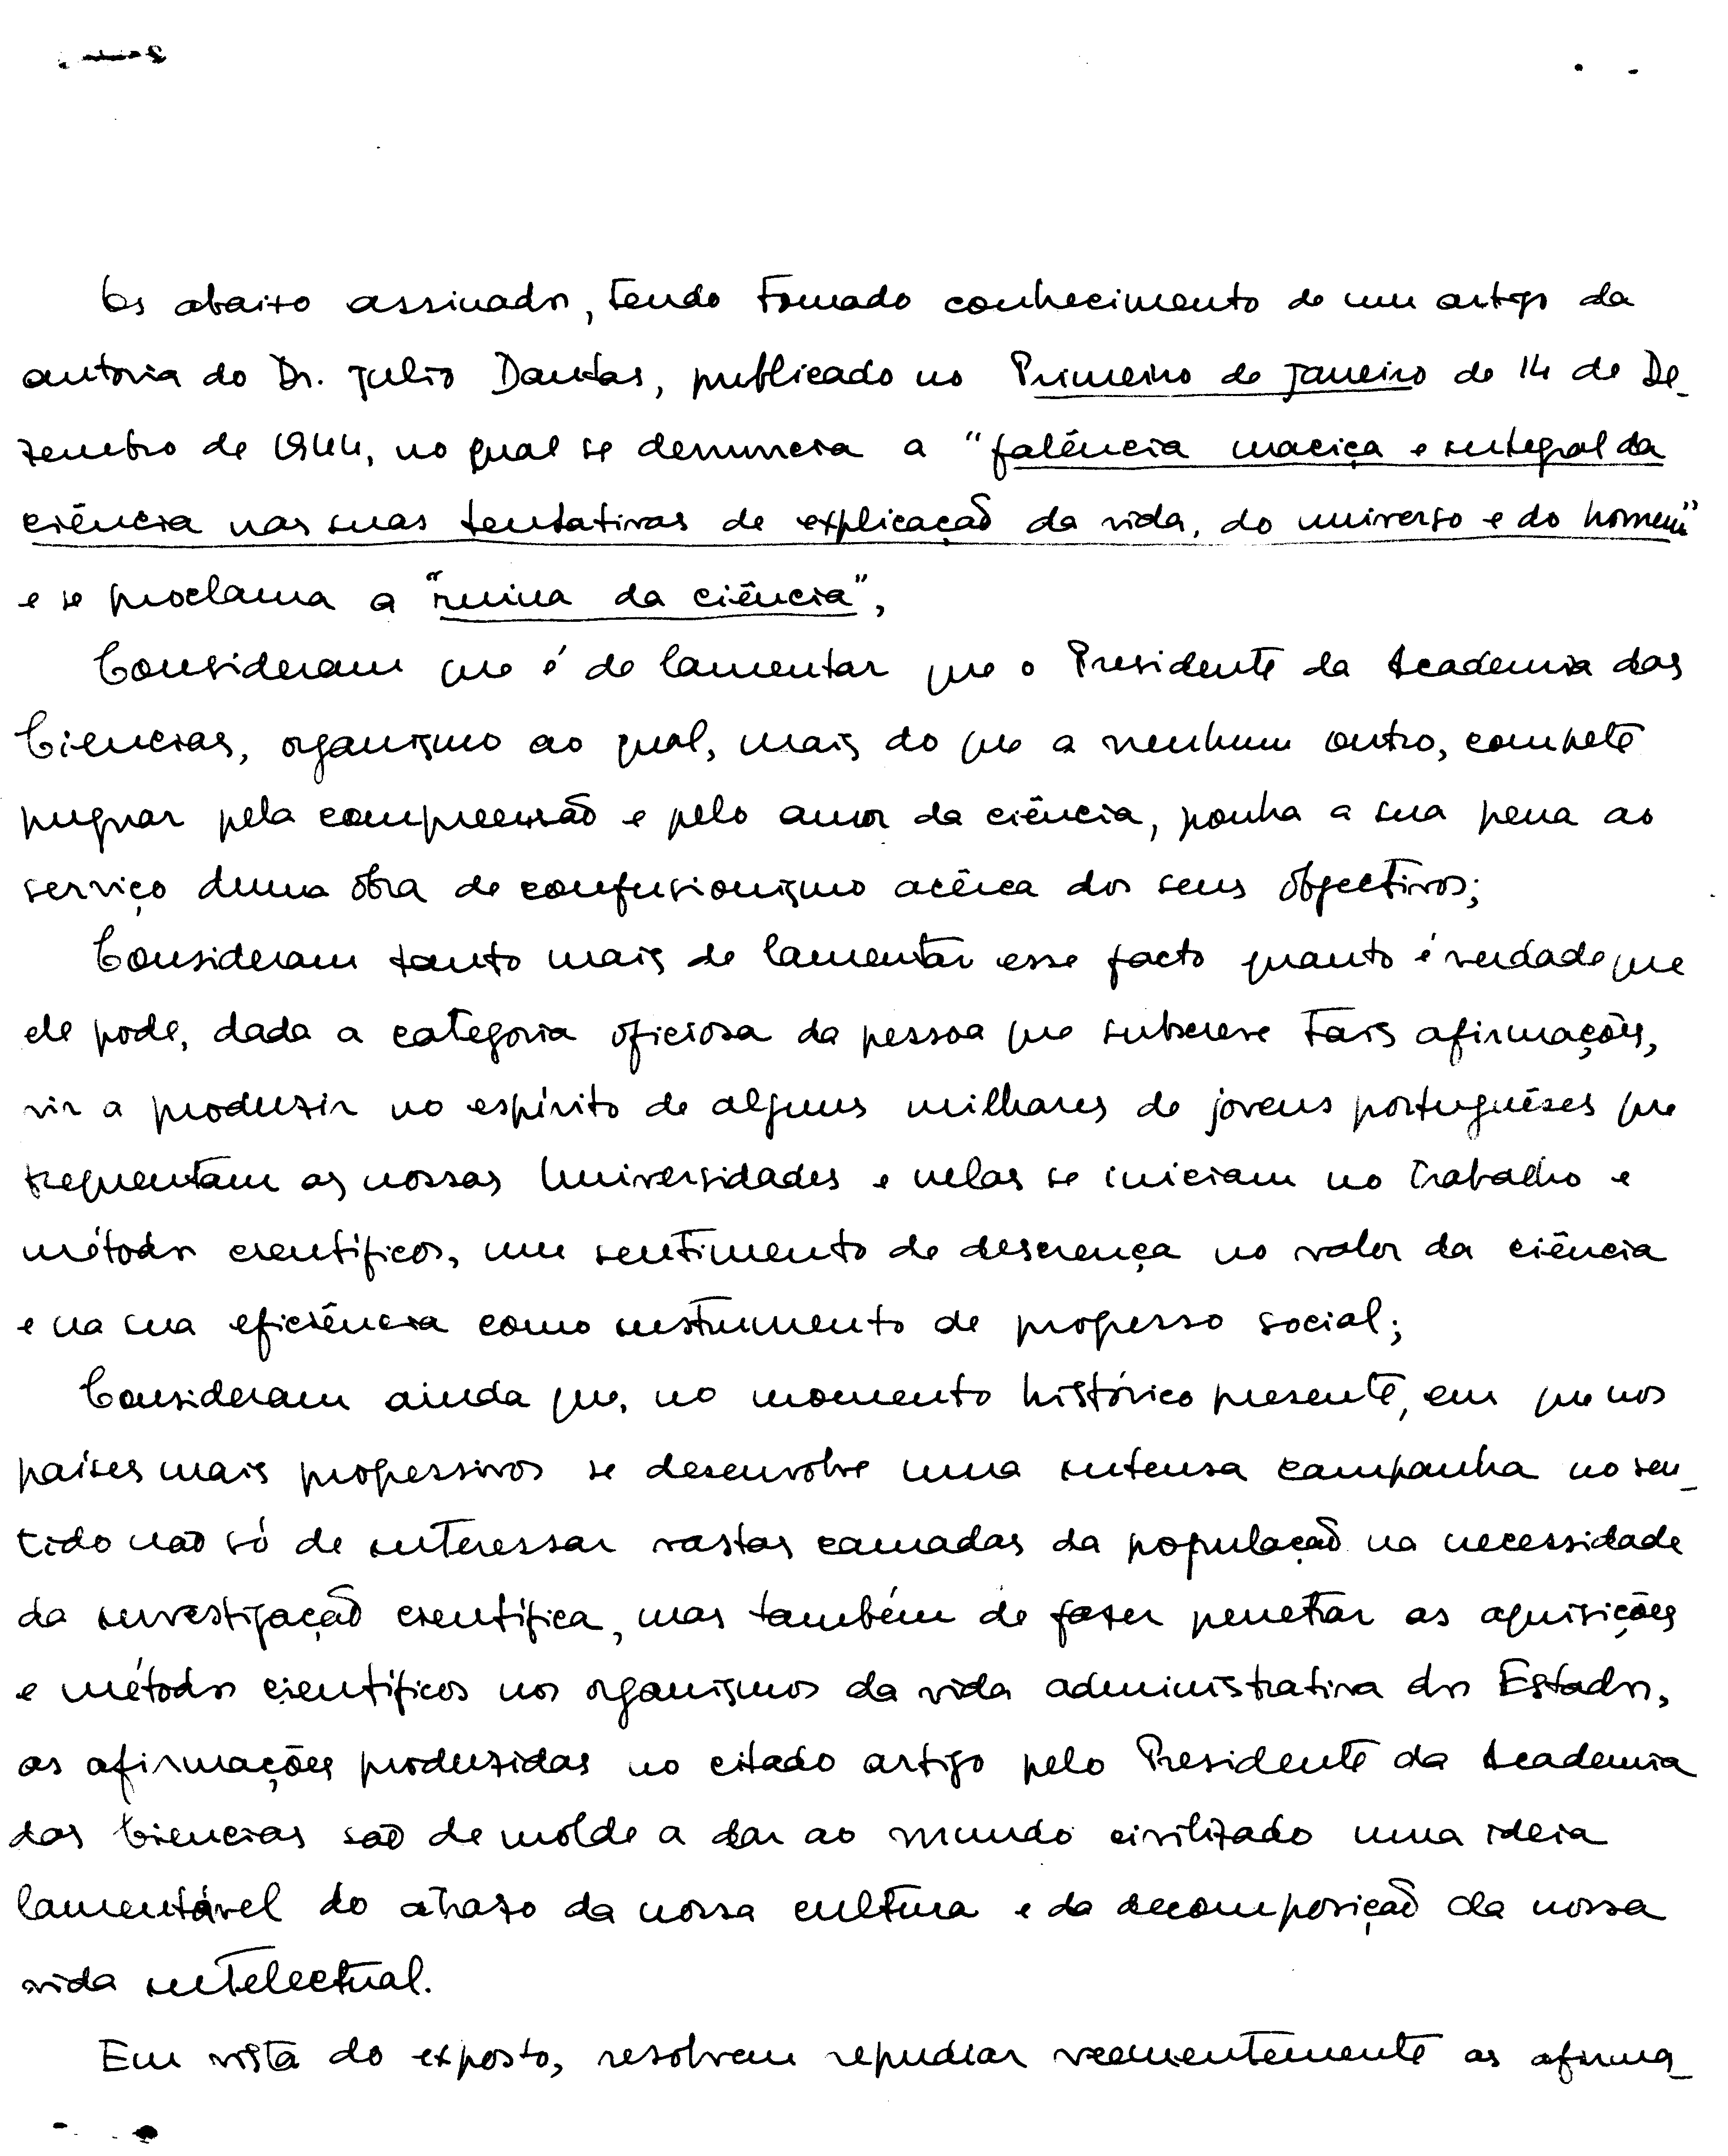 Os abaixo assinados, tendo tomado conhecimento de um artigo da
autoria do Dr. Julio Dantas, publicado no Primeiro de Janeiro de 14 de De-
zembro de 1944, no qual se denuncia a "falência maciça e integral da
ciência nas suas tentativas de explicação da vida, do universo e do homem"
e se proclama a "ruina da ciência",
Consideram que é de lamentar que o Presidente da Academia das
Ciencias, organismo ao qual, mais do que a nenhum outro, compete
pugnar pela compreensão e pelo amor da ciência, ponha a sua pena ao
serviço duma obra de confusionismo acêrca dos seus objectivos;
Consideram tanto mais de lamentar esse facto quanto é verdade que
ele pode, dada a categoria oficiosa da pessoa que subscreve tais afirmações,
vir a produzir no espírito de alguns milhares de jovens portuguêses que
frequentam as nossas Universidades e nelas se iniciam no trabalho e
métodos científicos, um sentimento de descrença no valor da ciência
e na sua eficiência como instrumento de progresso social;
Consideram ainda que, no momento histórico presente, em que nos
países mais progressivos se desenvolve uma intensa campanha no sen-
tido não só de interessar vastas camadas da população na necessidade
da investigação científica, mas também de fazer penetrar as aquisições
e métodos científicos nos organismos da vida administrativa dos Estados,
as afirmações produzidas no citado artigo pelo Presidente da Academia
das Ciencias são de molde a dar ao mundo civilizado uma ideia
lamentável do atrazo da nossa cultura e da decomposição da nossa
vida intelectual.
Em vista do exposto, resolvem repudiar veementemente as afirma-